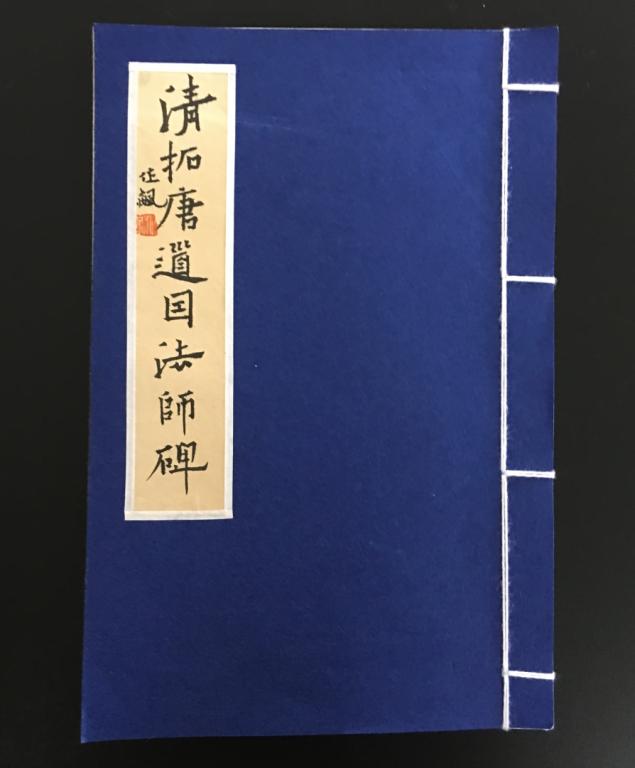 清拓唐道因法師碑